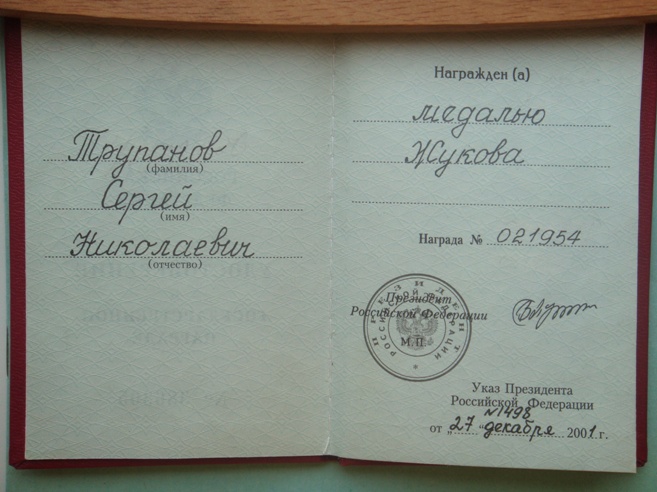 Трупанов
(фамилия)
Сергей
(имя)
Николаевич
(отчество)
Награжден (а)
медалью
Жукова
Награда № 021954
ПРЕЗИДЕНТ
РОССИЙСКОЙ ФЕДЕРАЦИИ
Президент
Российской Федерации
М.П.
Указ Президента
Российской Федерации
№1498
от „27" декабря 2001 г.